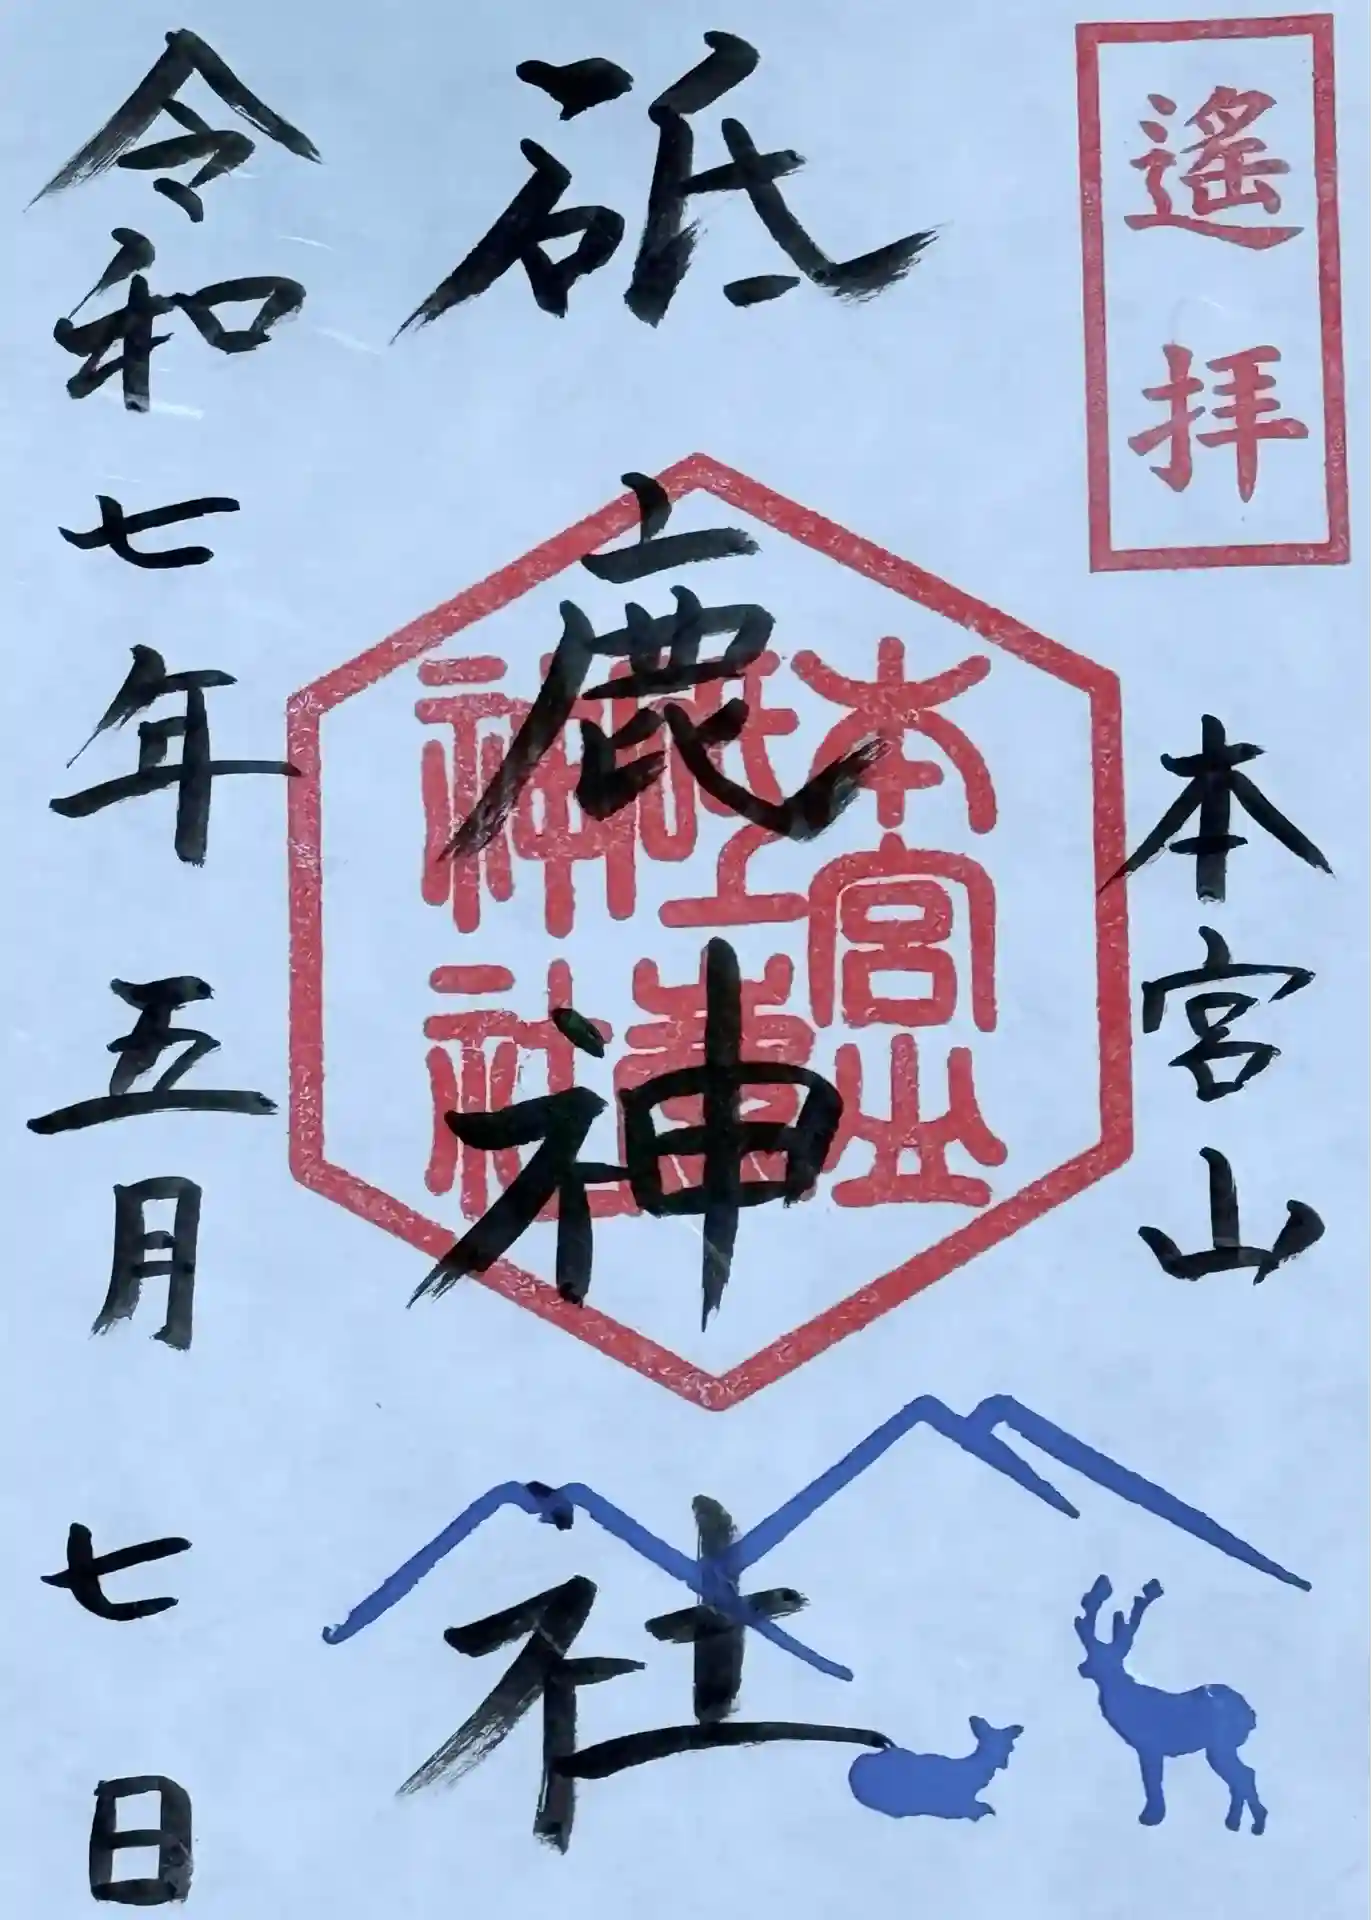 遙拝
本宮山
砥鹿神社
本宮山
砥鹿
神社
令和七年五月七日